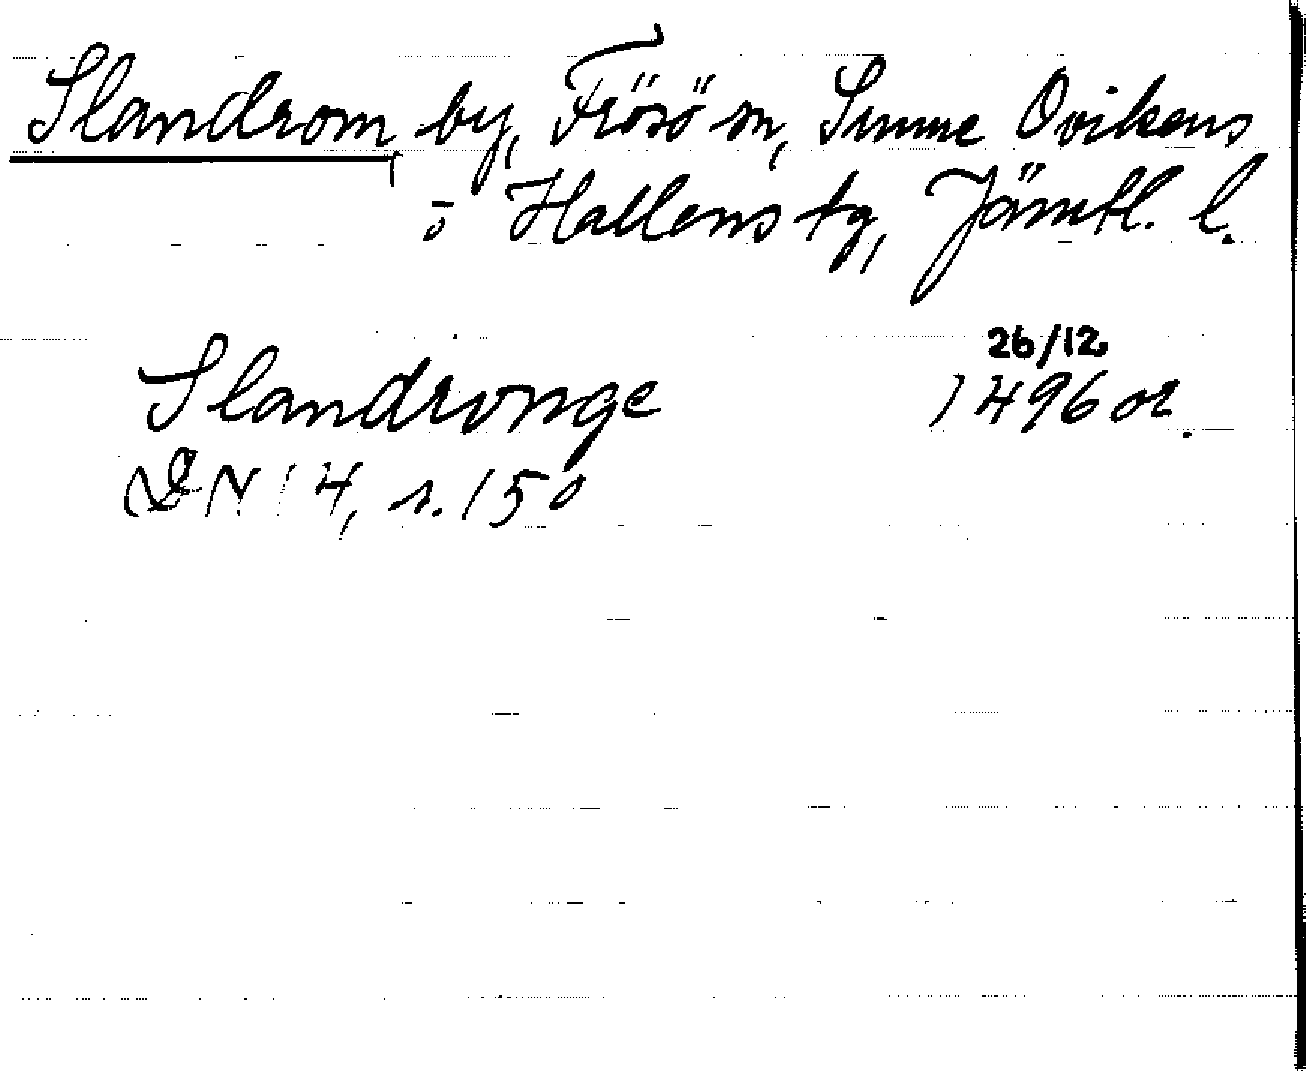 Slandrom, by, Frösö sn, Sunne Ovikens
o Hallens tg, Jämtl. l.
26/12
Slandronge 1496 or.
DN 14, s. 150